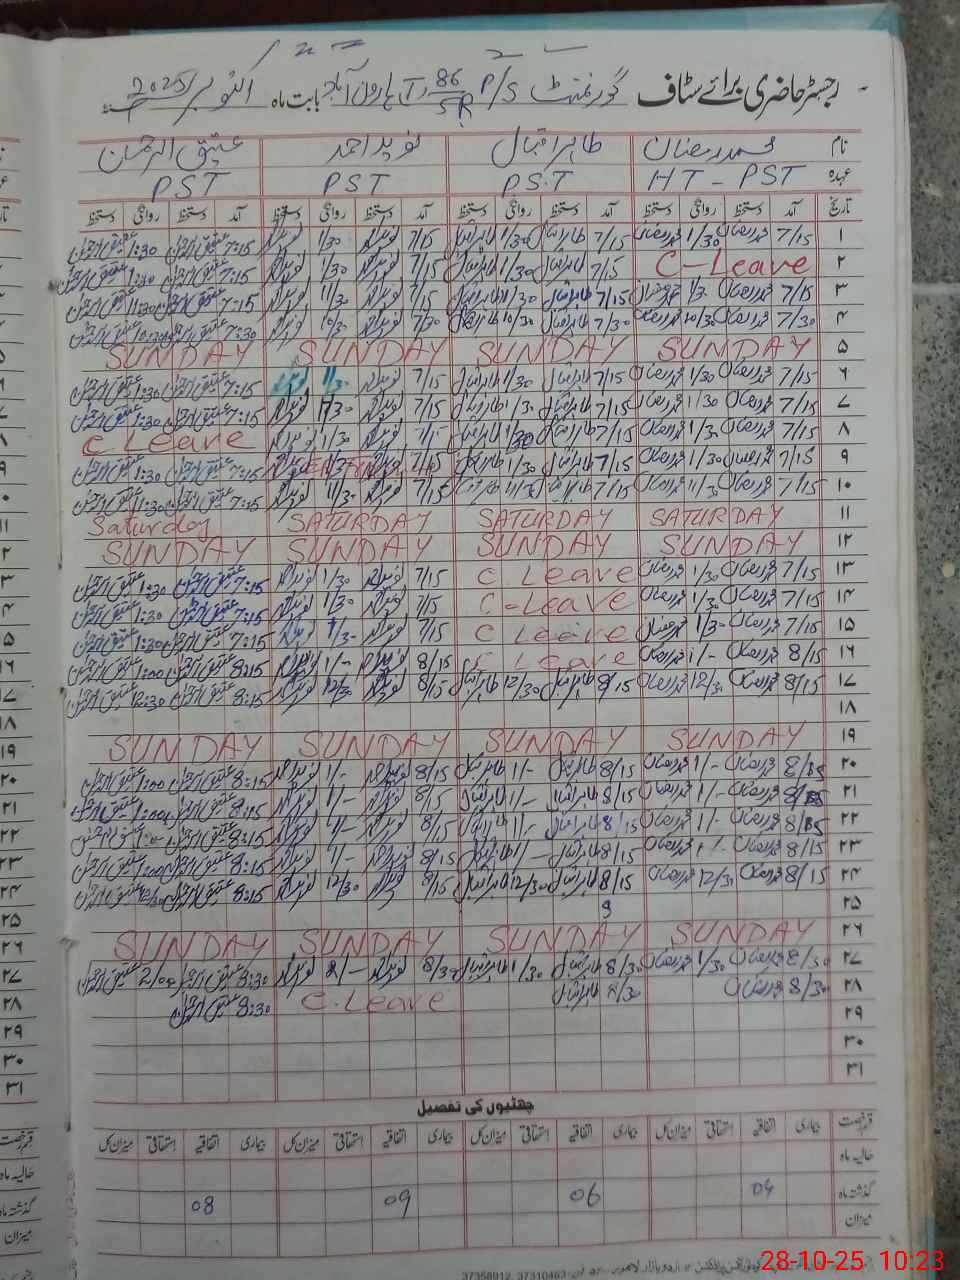 رجسٹر حاضری برائے سٹاف گورنمنٹ P/S 86/5R ہارون آباد بابت ماہ اکتوبر 2025
نام محمد رمضان طاہر اقبال نوید احمد عتیق الرحمن
عہدہ HT - PST PST PST PST
تاریخ آمد دستخط روانگی دستخط آمد دستخط روانگی دستخط آمد دستخط روانگی دستخط آمد دستخط روانگی دستخط
۱ 7/15 محمد رمضان 1/30 محمد رمضان 7/15 طاہر اقبال 1/30 طاہر اقبال 7/15 نوید احمد 1/30 نوید احمد 7:15 عتیق الرحمن 1:30 عتیق الرحمن
۲ C-Leave 7/15 طاہر اقبال 1/30 طاہر اقبال 7/15 نوید احمد 1/30 نوید احمد 7:15 عتیق الرحمن 1:30 عتیق الرحمن
۳ 7/15 محمد رمضان 1/30 محمد رمضان 7/15 طاہر اقبال 11/30 طاہر اقبال 7/15 نوید احمد 11/30 نوید احمد 7:15 عتیق الرحمن 11:30 عتیق الرحمن
۴ 7/30 محمد رمضان 10/30 محمد رمضان 7/30 طاہر اقبال 10/30 طاہر اقبال 7/30 نوید احمد 10/30 نوید احمد 7:30 عتیق الرحمن 10:30 عتیق الرحمن
۵ SUNDAY SUNDAY SUNDAY SUNDAY
۶ 7/15 محمد رمضان 1/30 محمد رمضان 7/15 طاہر اقبال 1/30 طاہر اقبال 7/15 نوید احمد 7:15 عتیق الرحمن 1:30 عتیق الرحمن
۷ 7/15 محمد رمضان 1/30 محمد رمضان 7/15 طاہر اقبال 1/30 طاہر اقبال 7/15 نوید احمد 1/30 نوید احمد 7:15 عتیق الرحمن 1:30 عتیق الرحمن
۸ 7/15 محمد رمضان 1/30 محمد رمضان 7/15 طاہر اقبال 1/30 طاہر اقبال نوید احمد 1/30 نوید احمد C Leave
۹ 7/15 محمد رمضان 1/30 محمد رمضان 7/15 طاہر اقبال 1/30 طاہر اقبال 7/15 نوید احمد 1/30 7:15 عتیق الرحمن 1:30 عتیق الرحمن
۱۰ 7/15 محمد رمضان 11/30 محمد رمضان 7/15 طاہر اقبال 11/30 طاہر اقبال 7/15 نوید احمد 11/30 نوید احمد 7:15 عتیق الرحمن عتیق الرحمن
۱۱ SATURDAY SATURDAY SATURDAY Saturday
۱۲ SUNDAY SUNDAY SUNDAY SUNDAY
۱۳ 7/15 محمد رمضان 1/30 محمد رمضان C Leave 7/15 نوید احمد 1/30 نوید احمد 7:15 عتیق الرحمن 1:30 عتیق الرحمن
۱۴ 7/15 محمد رمضان 1/30 محمد رمضان C-Leave 7/15 نوید احمد 1/30 نوید احمد 7:15 عتیق الرحمن 1:30 عتیق الرحمن
۱۵ 7/15 محمد رمضان 1/30 محمد رمضان C Leave 7/15 نوید احمد 1/30 نوید احمد 7:15 عتیق الرحمن 1:30 عتیق الرحمن
۱۶ 8/15 محمد رمضان 1/- محمد رمضان C Leave 8/15 نوید احمد 1/- نوید احمد 8:15 عتیق الرحمن 1:00 عتیق الرحمن
۱۷ 8/15 محمد رمضان 12/30 محمد رمضان 8/15 طاہر اقبال 12/30 طاہر اقبال 8/15 نوید احمد 12/30 نوید احمد 8:15 عتیق الرحمن 12:30 عتیق الرحمن
۱۸
۱۹ SUNDAY SUNDAY SUNDAY SUNDAY
۲۰ 8/15 محمد رمضان 1/- محمد رمضان 8/15 طاہر اقبال 1/- طاہر اقبال 8/15 نوید احمد 1/- نوید احمد 8:15 عتیق الرحمن 1:00 عتیق الرحمن
۲۱ 8/15 محمد رمضان 1/- محمد رمضان 8/15 طاہر اقبال 1/- طاہر اقبال 8/15 نوید احمد 1/- نوید احمد 8:15 عتیق الرحمن 1:00 عتیق الرحمن
۲۲ 8/15 محمد رمضان 1/- محمد رمضان 8/15 طاہر اقبال 1/- طاہر اقبال 8/15 نوید احمد 1/- نوید احمد 8:15 عتیق الرحمن عتیق الرحمن
۲۳ 8/15 محمد رمضان 1/- محمد رمضان 8/15 طاہر اقبال 1/- طاہر اقبال 8/15 نوید احمد 1/- نوید احمد 8:15 عتیق الرحمن 1:00 عتیق الرحمن
۲۴ 8/15 محمد رمضان 12/30 محمد رمضان 8/15 طاہر اقبال 12/30 طاہر اقبال 8/15 نوید احمد 12/30 نوید احمد 8:15 عتیق الرحمن 12/30 عتیق الرحمن
۲۵ 9
۲۶ SUNDAY SUNDAY SUNDAY SUNDAY
۲۷ 8/30 محمد رمضان 1/30 محمد رمضان 8/30 طاہر اقبال 1/30 طاہر اقبال 8/30 نوید احمد نوید احمد 8:30 عتیق الرحمن 2/00 عتیق الرحمن
۲۸ 8/30 محمد رمضان 8/30 طاہر اقبال C-Leave 8:30 عتیق الرحمن
۲۹
۳۰
۳۱
چھٹیوں کی تفصیل
قسم رخصت بیماری اتفاقیہ استحقاقی میزان کل بیماری اتفاقیہ استحقاقی میزان کل بیماری اتفاقیہ استحقاقی میزان کل بیماری اتفاقیہ استحقاقی میزان کل
حالیہ ماہ
گذشتہ ماہ 04 06 09 08
میزان
37358912, 37310463
28-10-25 10:23